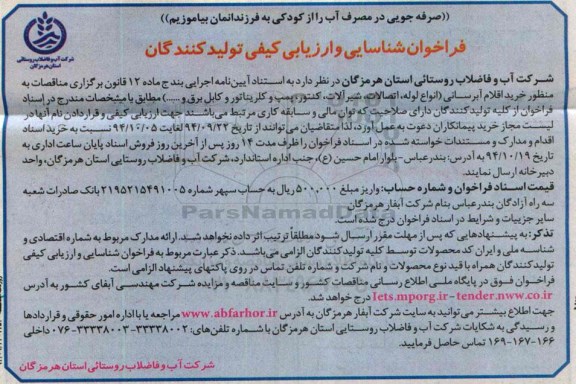 ((صرفه جویی در مصرف آب را از کودکی به فرزندانمان بیاموزیم))
شرکت آب و فاضلاب روستائی
استان هرمزگان
فراخوان شناسایی وارزیابی کیفی تولیدکنندگان
شرکت آب و فاضلاب روستائی استان هرمزگان در نظر دارد به استناد آیین نامه اجرایی بند ج ماده ۱۲ قانون برگزاری مناقصات به
منظور خرید اقلام آبرسانی (انواع لوله، اتصالات، شیرآلات، کنتور، پمپ و کلریناتور و کابل برق و.....) مطابق با مشخصات مندرج در اسناد
فراخوان از کلیه تولیدکنندگان دارای صلاحیت و توان مالی و سابقه کاری مرتبط می‌باشند جهت ارزیابی کیفی و قراردادن نام آنها در
لیست مجاز خرید پیمانکاران دعوت به عمل آورد، لذا متقاضیان می‌توانند از تاریخ ۹۴/۰۹/۲۲ لغایت ۹۴/۱۰/۰۵ نسبت به خرید اسناد
اقدام و مدارک و مستندات خواسته شده در اسناد فراخوان را ظرف مدت ۱۴ روز پس از آخرین روز فروش اسناد پایان ساعت اداری به
تاریخ ۹۴/۱۰/۱۹ به آدرس: بندرعباس- بلوار امام حسین (ع)، جنب اداره استاندارد، شرکت آب و فاضلاب روستایی استان هرمزگان، واحد
دبیرخانه ارسال نمایند.
قیمت اسناد فراخوان و شماره حساب: واریز مبلغ ۵۰۰,۰۰۰ ریال به حساب سپهر شماره ۲۱۹۵۲۱۵۴۹۱۰۰۵ بانک صادرات شعبه
سه راه آزادگان بندرعباس بنام شرکت آبفار هرمزگان
سایر جزییات و شرایط در اسناد فراخوان درج شده است.
ParsNamadData
تذکر: به پیشنهادهایی که پس از مهلت مقرر ارسال شود مطلقاً ترتیب اثر داده نخواهد شد. ارائه مدارک مربوط به شماره اقتصادی و
شناسه ملی و ایران کد محصولات توسط کلیه تولیدکنندگان الزامی می‌باشد. ذکر عبارت مربوط به فراخوان شناسایی و ارزیابی کیفی
تولیدکنندگان همراه با قید نوع محصولات و نام شرکت و شماره تلفن تماس در روی پاکتهای پیشنهاد الزامی است.
فراخوان فوق در پایگاه ملی اطلاع رسانی مناقصات کشور و سایت مناقصه و مزایده شرکت مهندسی آبفای کشور به آدرس
Iets.mporg.ir- tender.nww.co.ir درج خواهد شد.
جهت اطلاع بیشتر می توانید به سایت شرکت آبفار هرمزگان به آدرس www.abfarhor.ir مراجعه یا با اداره امور حقوقی و قراردادها
و رسیدگی به شکایات شرکت آب و فاضلاب روستایی استان هرمزگان با شماره تلفن‌های: ۳۳۳۳۸۰۰۲-۳۳۳۳۸۰۰۳-۰۷۶ داخلی
۱۶۶-۱۶۷-۱۶۹ تماس حاصل فرمایید.
شرکت آب و فاضلاب روستائی استان هرمزگان